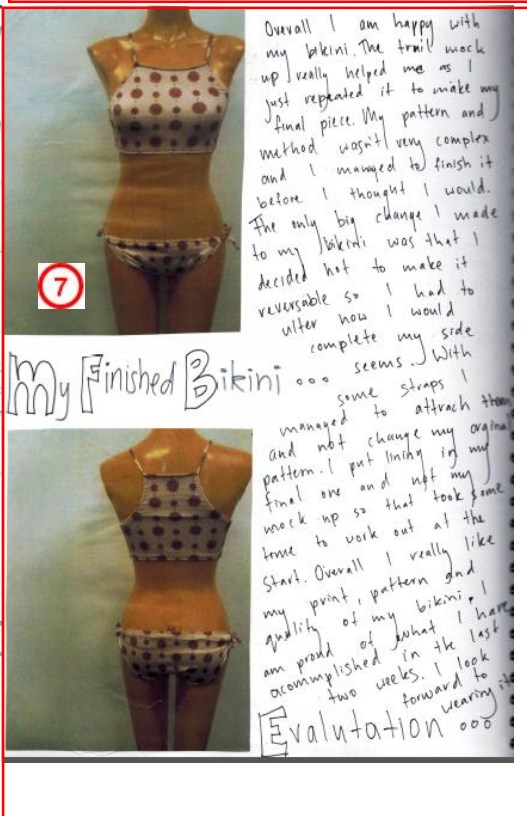 Overall I am happy with
my bikini. The trail mock
up really helped me as I
just repeated it to make my
final piece. My pattern and
method wasn't very complex
and I managed to finish it
before I thought I would.
The only big change I made
to my bikini was that I
decided not to make it
reversable so I had to
ulter how I would
complete my side
seems. With
some straps I
managed to attrach them
and not change my orginal
pattern. I put lining in my
final one and not my
mock up so that took some
time to work out at the
start. Overall I really like
my print, pattern and
quality of my bikini. I
am proud of what I have
acommplished in the last
two weeks. I look
forward to
wearing it
Evalutation ...
7
My Finished Bikini ...